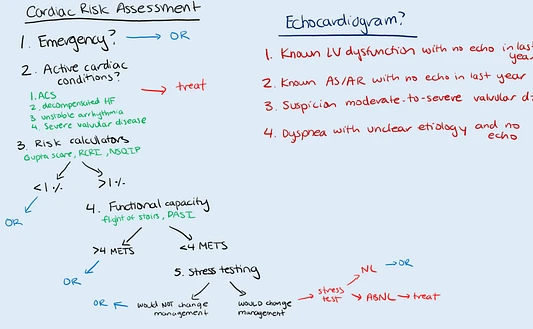 Cardiac Risk Assessment
1. Emergency? → OR
2. Active cardiac
conditions?
→ treat
1. ACS
2. decompensated HF
3. unstable arrhythmia
4. Severe valvular disease
3. Risk calculators
Gupta score, RCRI, NSQIP
<1% >1%
OR
4. Functional capacity
flight of stairs, DASI
>4 METS <4 METS
OR
5. Stress testing
OR ← would NOT change
management
would change
management
→ stress
test
→ NL → OR
→ ABNL → treat
Echocardiogram?
1. Known LV dysfunction with no echo in last
year
2. Known AS/AR with no echo in last year
3. Suspicion moderate-to-severe valvular d
4. Dyspnea with unclear etiology and no
echo